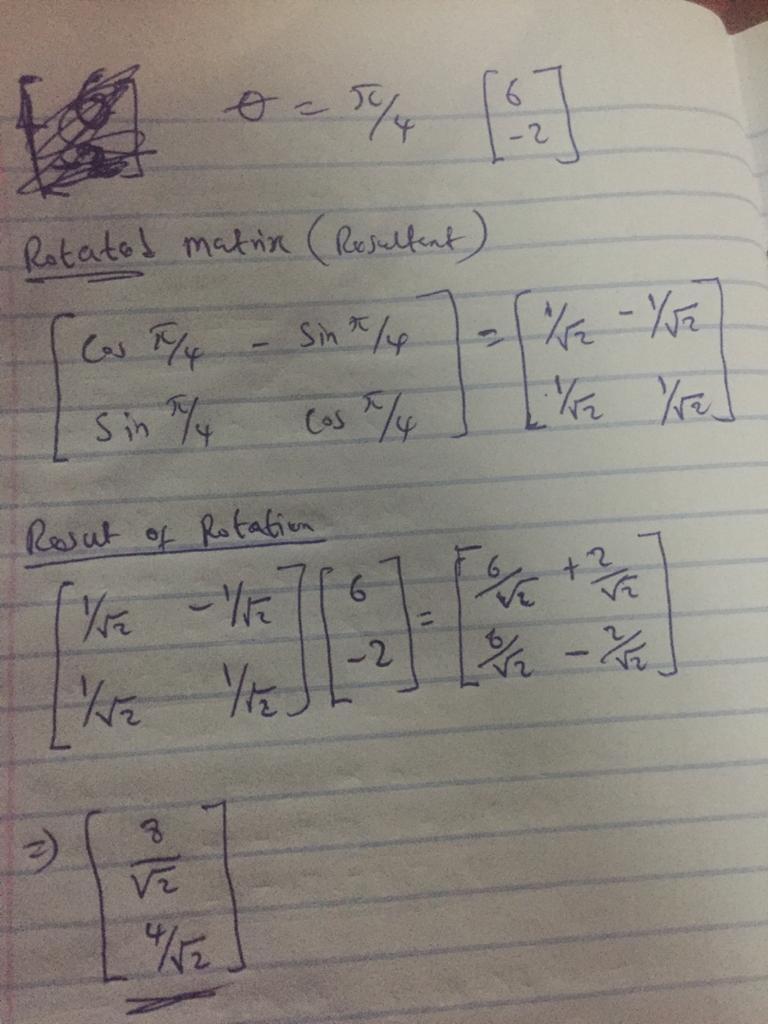 θ = π/4 [6 -2]
Rotated matrix (Resultant)
[cos π/4 - sin π/4
sin π/4 cos π/4] = [1/√2 -1/√2
1/√2 1/√2]
Result of Rotation
[1/√2 -1/√2
1/√2 1/√2] [6
-2] = [6/√2 + 2/√2
6/√2 - 2/√2]
=) [8/√2
4/√2]